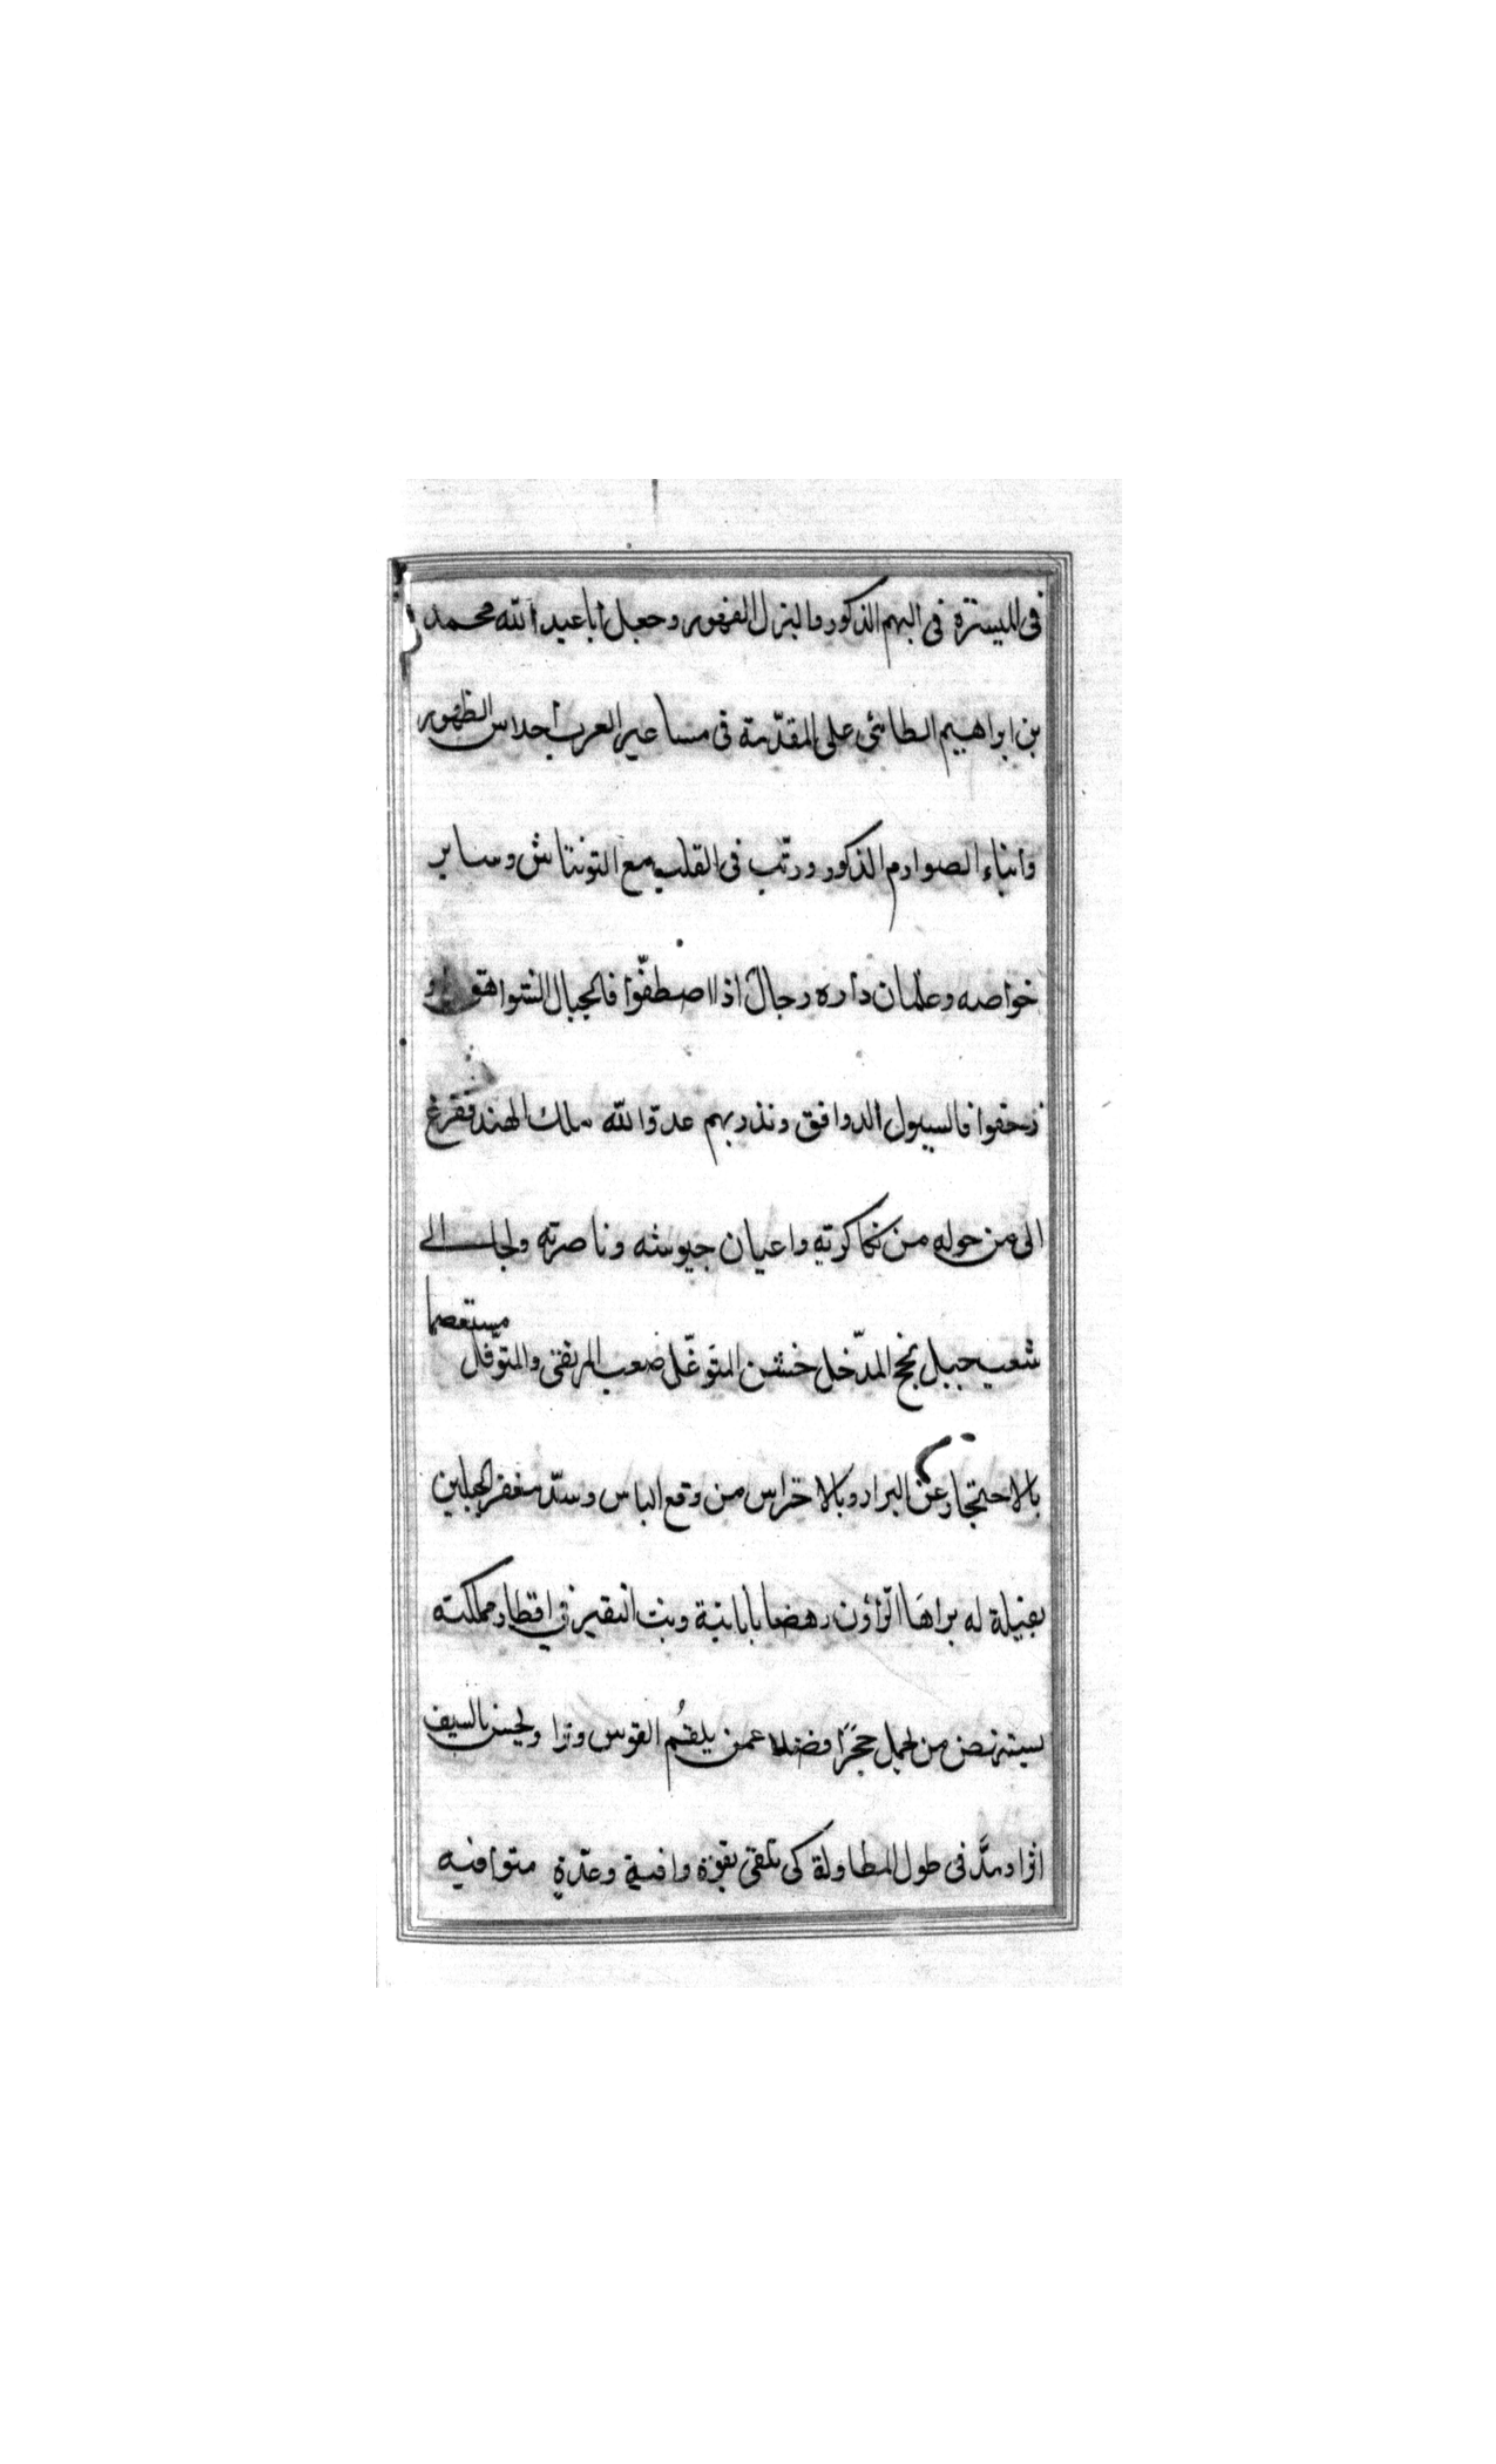 فى الميسرة فى البهم الذكور والبزل القهور وجعل أبا عبد الله محمد
بن ابراهيم الطائى على المقدّمة فى مساعير العرب أحلاس الظهور
وابناء الصوارم الذكور ورتّب فى القلب مع التونتاش وساير
خواصه وغلمان داره رجال اذا اصطفّوا فالجبال الشواهق او
زحفوا فالسيول الدوافق ونذر بهم عدوّ الله ملك الهند ففزع
الى من حوله من تكاكرته واعيان جيوشه وناصرته ولجا الى
شعب جبل لجج المدّخل خشن المتوغّل صعب المرتقى والمتوقّل مستعصما
بالاحتجار عن البراز وبالاحتراس من وقع الباس وسدّ مغفر الجبلين
بفيلة له يراها الرّاؤن هضابا بانية وبث النفير فى اقطار مملكته
يستنهض من يحمل حجرًا فضلا عمن يلقُم القوس وترا ويحسن بالسيف
اثرا ومدَّ فى طول المطاولة كى تلقى بقوة وافية وعدّةٍ متوافيه